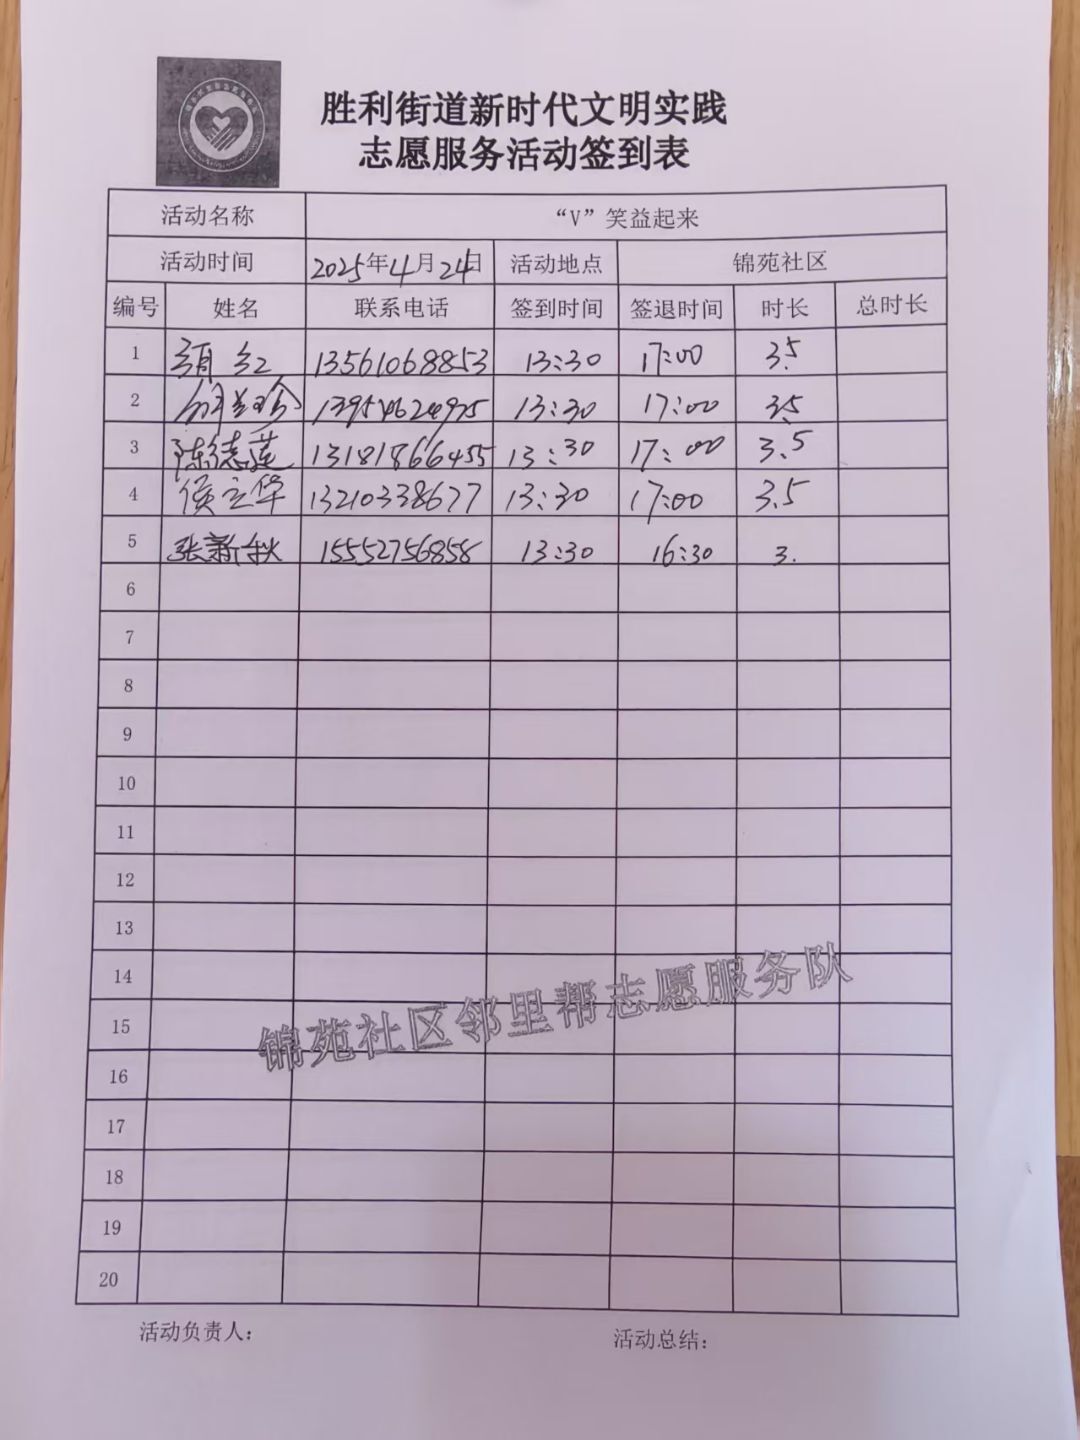 胜利街道新时代文明实践
志愿服务活动签到表
活动名称 “V”笑益起来
活动时间 2025年4月24日 活动地点 锦苑社区
编号 姓名 联系电话 签到时间 签退时间 时长 总时长
1 红 13561068853 13:30 17:00 3.5
2 13954624975 13:30 17:00 3.5
3 陈德莲 13181866455 13:30 17:00 3.5
4 侯立华 13210338677 13:30 17:00 3.5
5 张新秋 15552756858 13:30 16:30 3.
6
7
8
9
10
11
12
13
14
15
锦苑社区邻里帮志愿服务队
16
17
18
19
20
活动负责人: 活动总结: